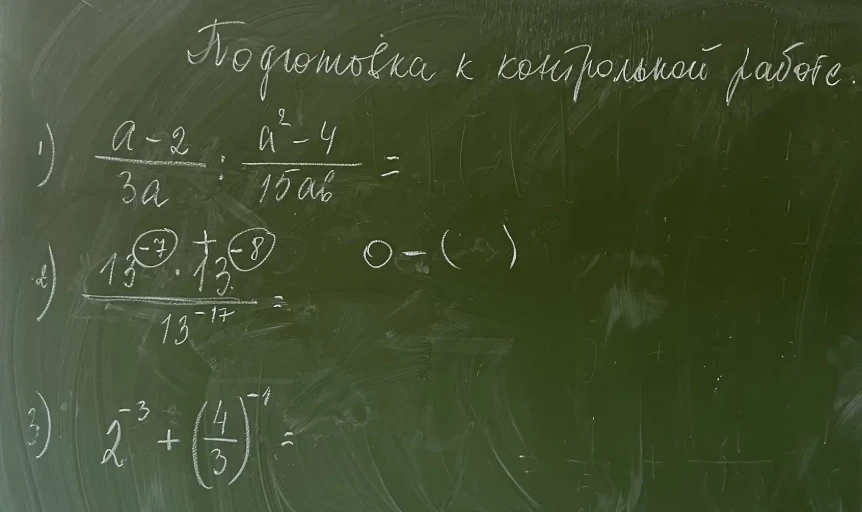 Подготовка к контрольной работе.
1) (a-2)/(3a) : (a²-4)/(15ab) =
2) (13⁻⁷ · 13⁻⁸)/(13⁻¹⁷) = + 0-( )
3) 2⁻³ + (4/3)⁻¹ =